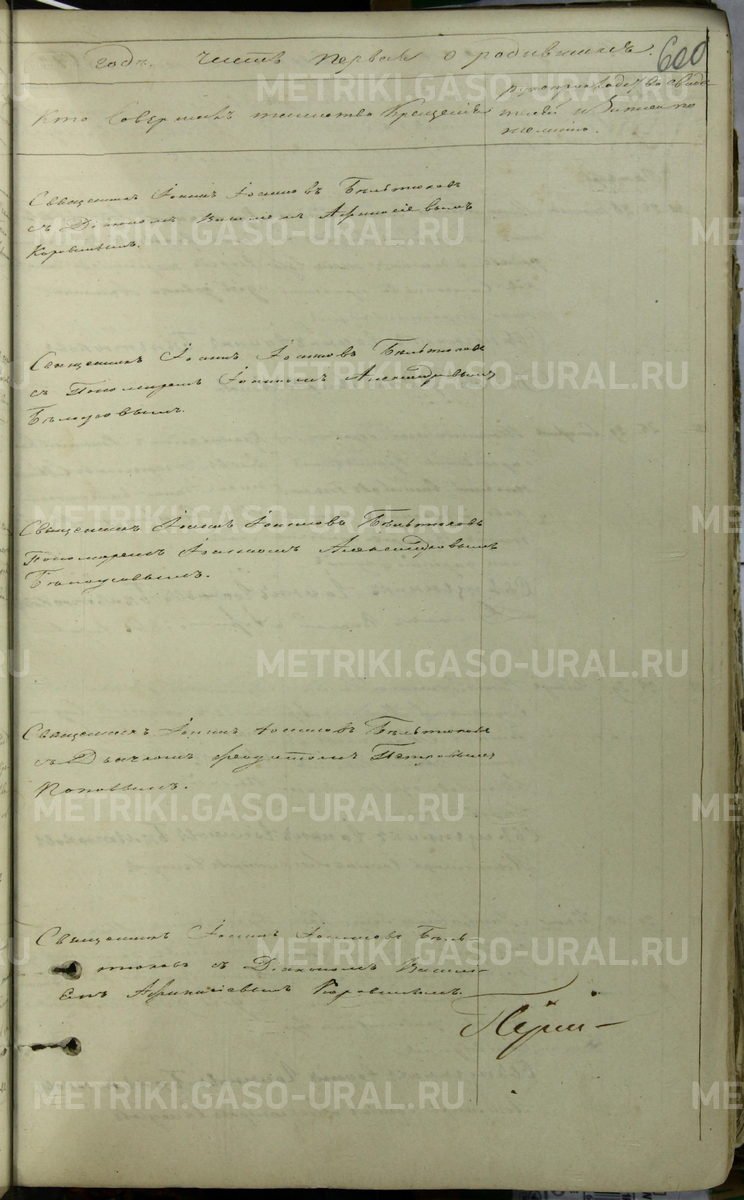 годъ. Часть первая о родившихся.
600
Кто совершалъ таинство Крещенiя
рукоприкладство свиде
телей
Священникъ Iоаннъ Iоанновъ Бѣльтюковъ
съ Дiакономъ Василiемъ Афанасiевымъ
Коровинымъ.
Священникъ Iоаннъ Iоанновъ Бѣльтюковъ
съ Пономаремъ Iоанномъ Александровымъ
Бѣлоусовымъ.
Священникъ Iоаннъ Iоанновъ Бѣльтюковъ
Пономаремъ Iоанномъ Александровымъ
Бѣлоусовымъ.
Священникъ Iоаннъ Iоанновъ Бѣльтюковъ
съ Дьячкомъ Феодитомъ Петровымъ
Поповымъ.
Священникъ Iоаннъ Iоанновъ Бѣль-
тюковъ съ Дiакономъ Василi-
емъ Афанасiевымъ Коровинымъ.
METRIKI.GASO-URAL.RU